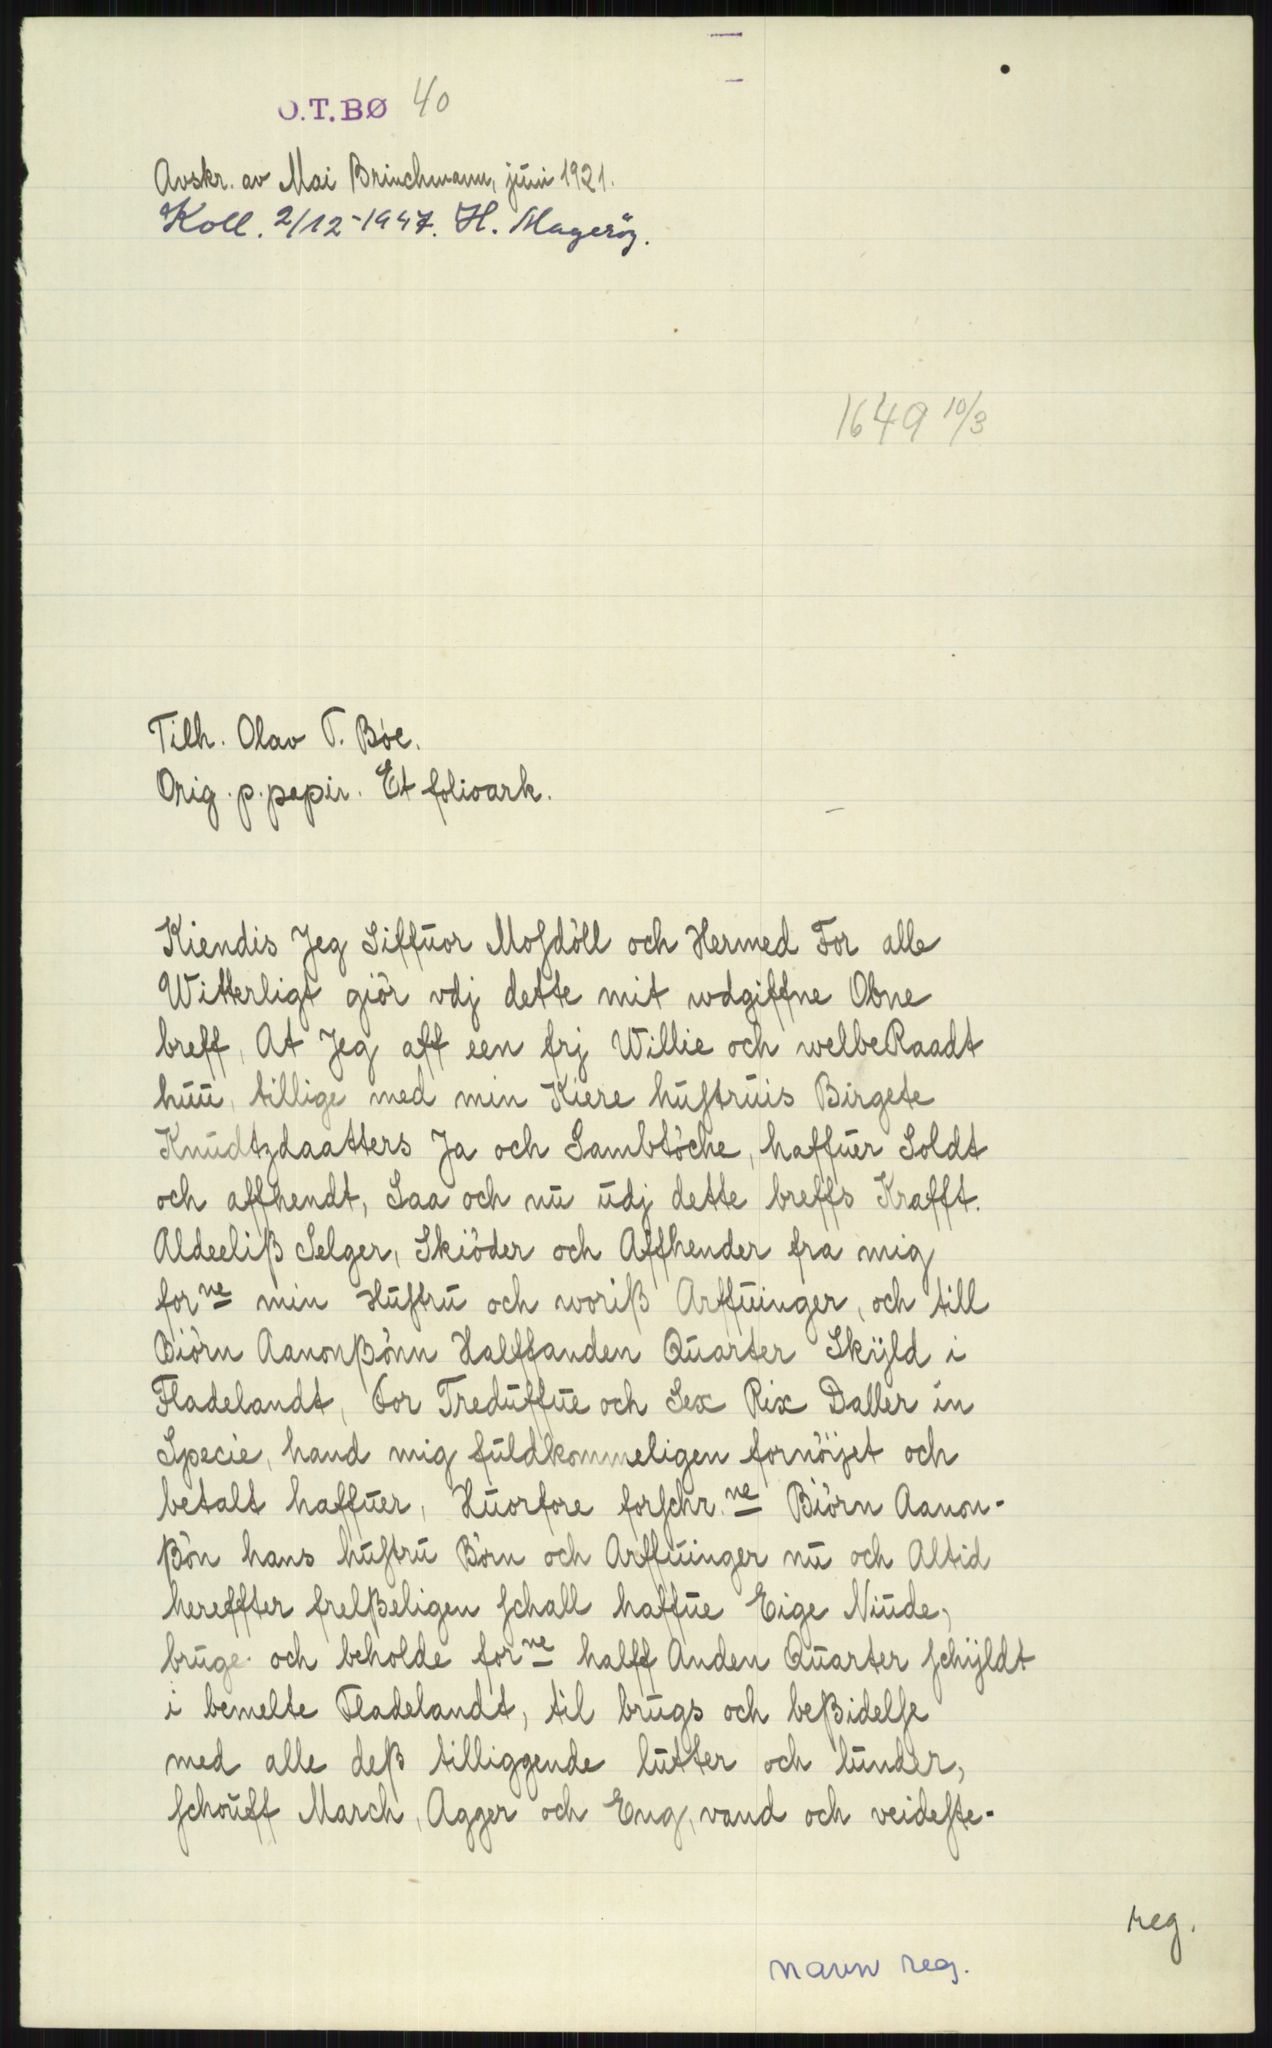 O.T.BØ 40
Avskr. av Mai Brinchmann, juni 1921.
Koll. 2/12-1947. H. Magerøy.
1649 10/3
Tilh. Olav T. Bøe.
Orig. p. papir. Et folioark.
Kiendis Jeg Siffuor Mosdöll och Hermed For alle
Witterligt giör vdj dette mit wdgiffne Obne
breff, At Jeg aff een frj Willie och welbeRaadt
huu, tillige med min Kiere hustruis Birgete
Knudtzdaatters Ja och Sambtöche, haffuer Soldt
och affhendt, Saa och nu udj dette breffs Krafft.
Aldeeliß Selger, Skiöder och Affhender fra mig
forne min Hustru och woriß Arffuinger, och till
Biörn Aanonßönn Halffanden Quarter Skÿld i
Fladelandt, for Treduffue och Sex Rix Daller in
Specie, hand mig fuldkommeligen fornöÿet och
betalt haffuer, Huorfore forschr.ne Biörn Aanon-
ßön hans hustru Börn och Arffuinger nu och Altid
hereffter frelßeligen schall haffue Eige Niude,
bruge och beholde forne halff Anden Quarter schÿldt
i bemelte Fladelandt, til brugs och beßidelse
med alle deß tilliggende lutter och lunder,
schouff March, Agger och Eng, vand och veideste-
reg.
navn reg.